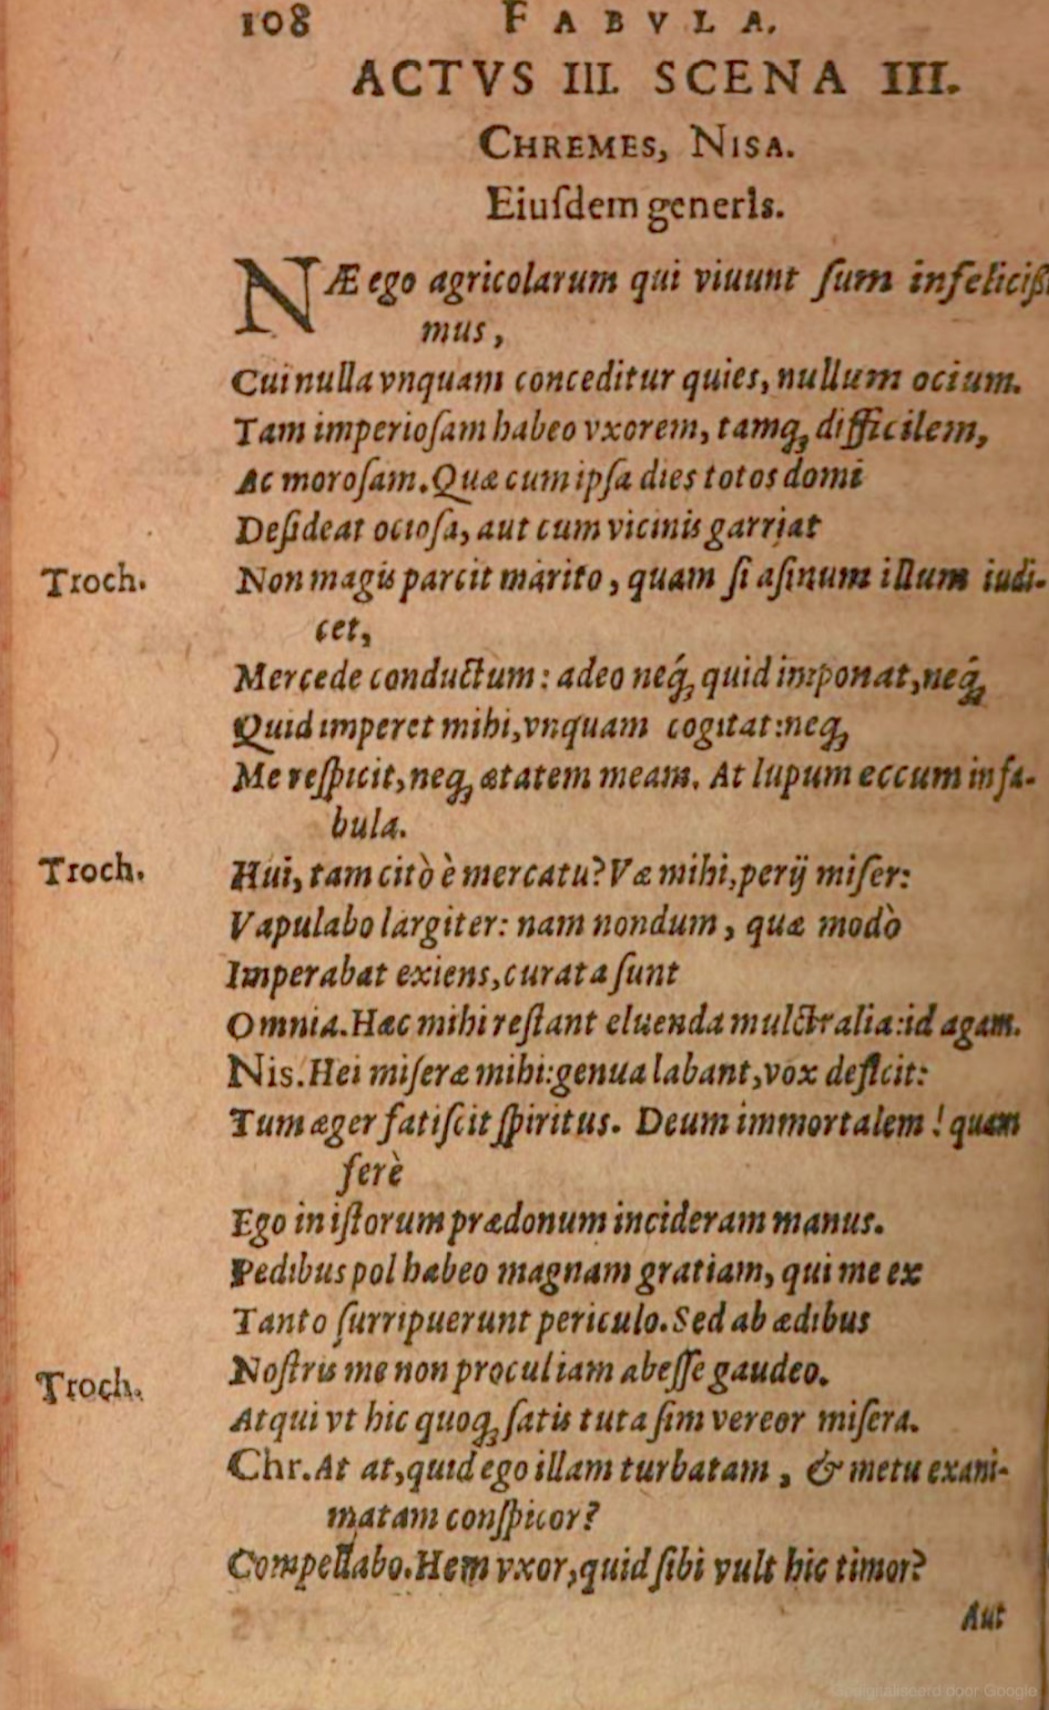 108 FABVLA.
ACTVS III. SCENA III.
CHREMES, NISA.
Eiuſdem generis.
NÆ ego agricolarum qui viuunt ſum infeliciſſi
mus,
Cui nulla vnquam conceditur quies, nullum ocium.
Tam imperioſam habeo vxorem, tamq́; difficilem,
Ac moroſam. Quæ cum ipſa dies totos domi
Deſideat ocioſa, aut cum vicinis garriat
Troch. Non magis parcit marito, quam ſi aſinum illum iudi-
cet,
Mercede conductum: adeo neq́; quid imponat, neq́;
Quid imperet mihi, vnquam cogitat: neq;
Me reſpicit, neq; ætatem meam. At lupum eccum in fa-
bula.
Troch. Hui, tam citò è mercatu? Væ mihi, perij miſer:
Vapulabo largiter: nam nondum, quæ modò
Imperabat exiens, curata ſunt
Omnia. Hæc mihi reſtant eluenda mulctralia: id agam.
Nis. Hei miſeræ mihi: genua labant, vox deficit:
Tum æger fatiſcit ſpiritus. Deum immortalem! quam
ferè
Ego in iſtorum prædonum incideram manus.
Pedibus pol habeo magnam gratiam, qui me ex
Tanto ſurripuerunt periculo. Sed ab ædibus
Noſtris me non procul iam abeſſe gaudeo.
Troch. Atqui vt hic quoq; ſatis tuta ſim vereor miſera.
Chr. At at, quid ego illam turbatam, & metu exani-
matam conſpicor?
Compellabo. Hem vxor, quid ſibi vult hic timor?
Aut
Gedigitaliseerd door Google